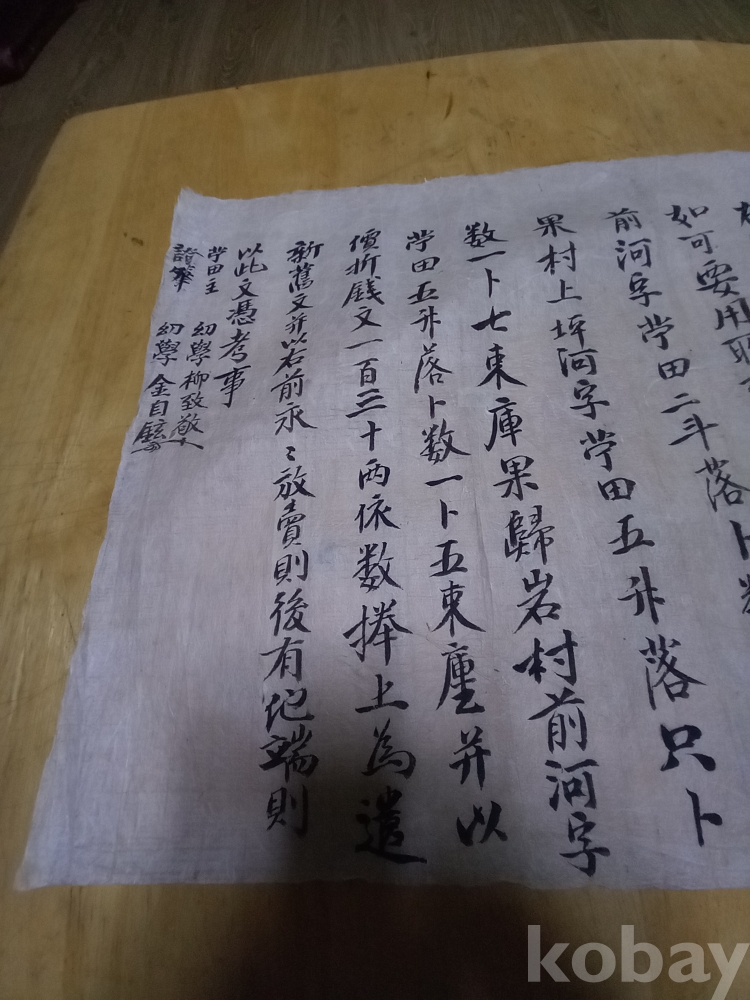 如可要用
前河字畓田二斗落卜数
果村上坪河字畓田五升落只卜
数一卜七束庫果歸岩村前河字
畓田五升落卜数一卜五束廤并以
價折錢文一百三十両依数捧上為遣
新舊文并以右前永〻放賣則後有他端則
以此文憑考事
畓田主 幼學柳致敬
證筆 幼學金自鉉
kobay